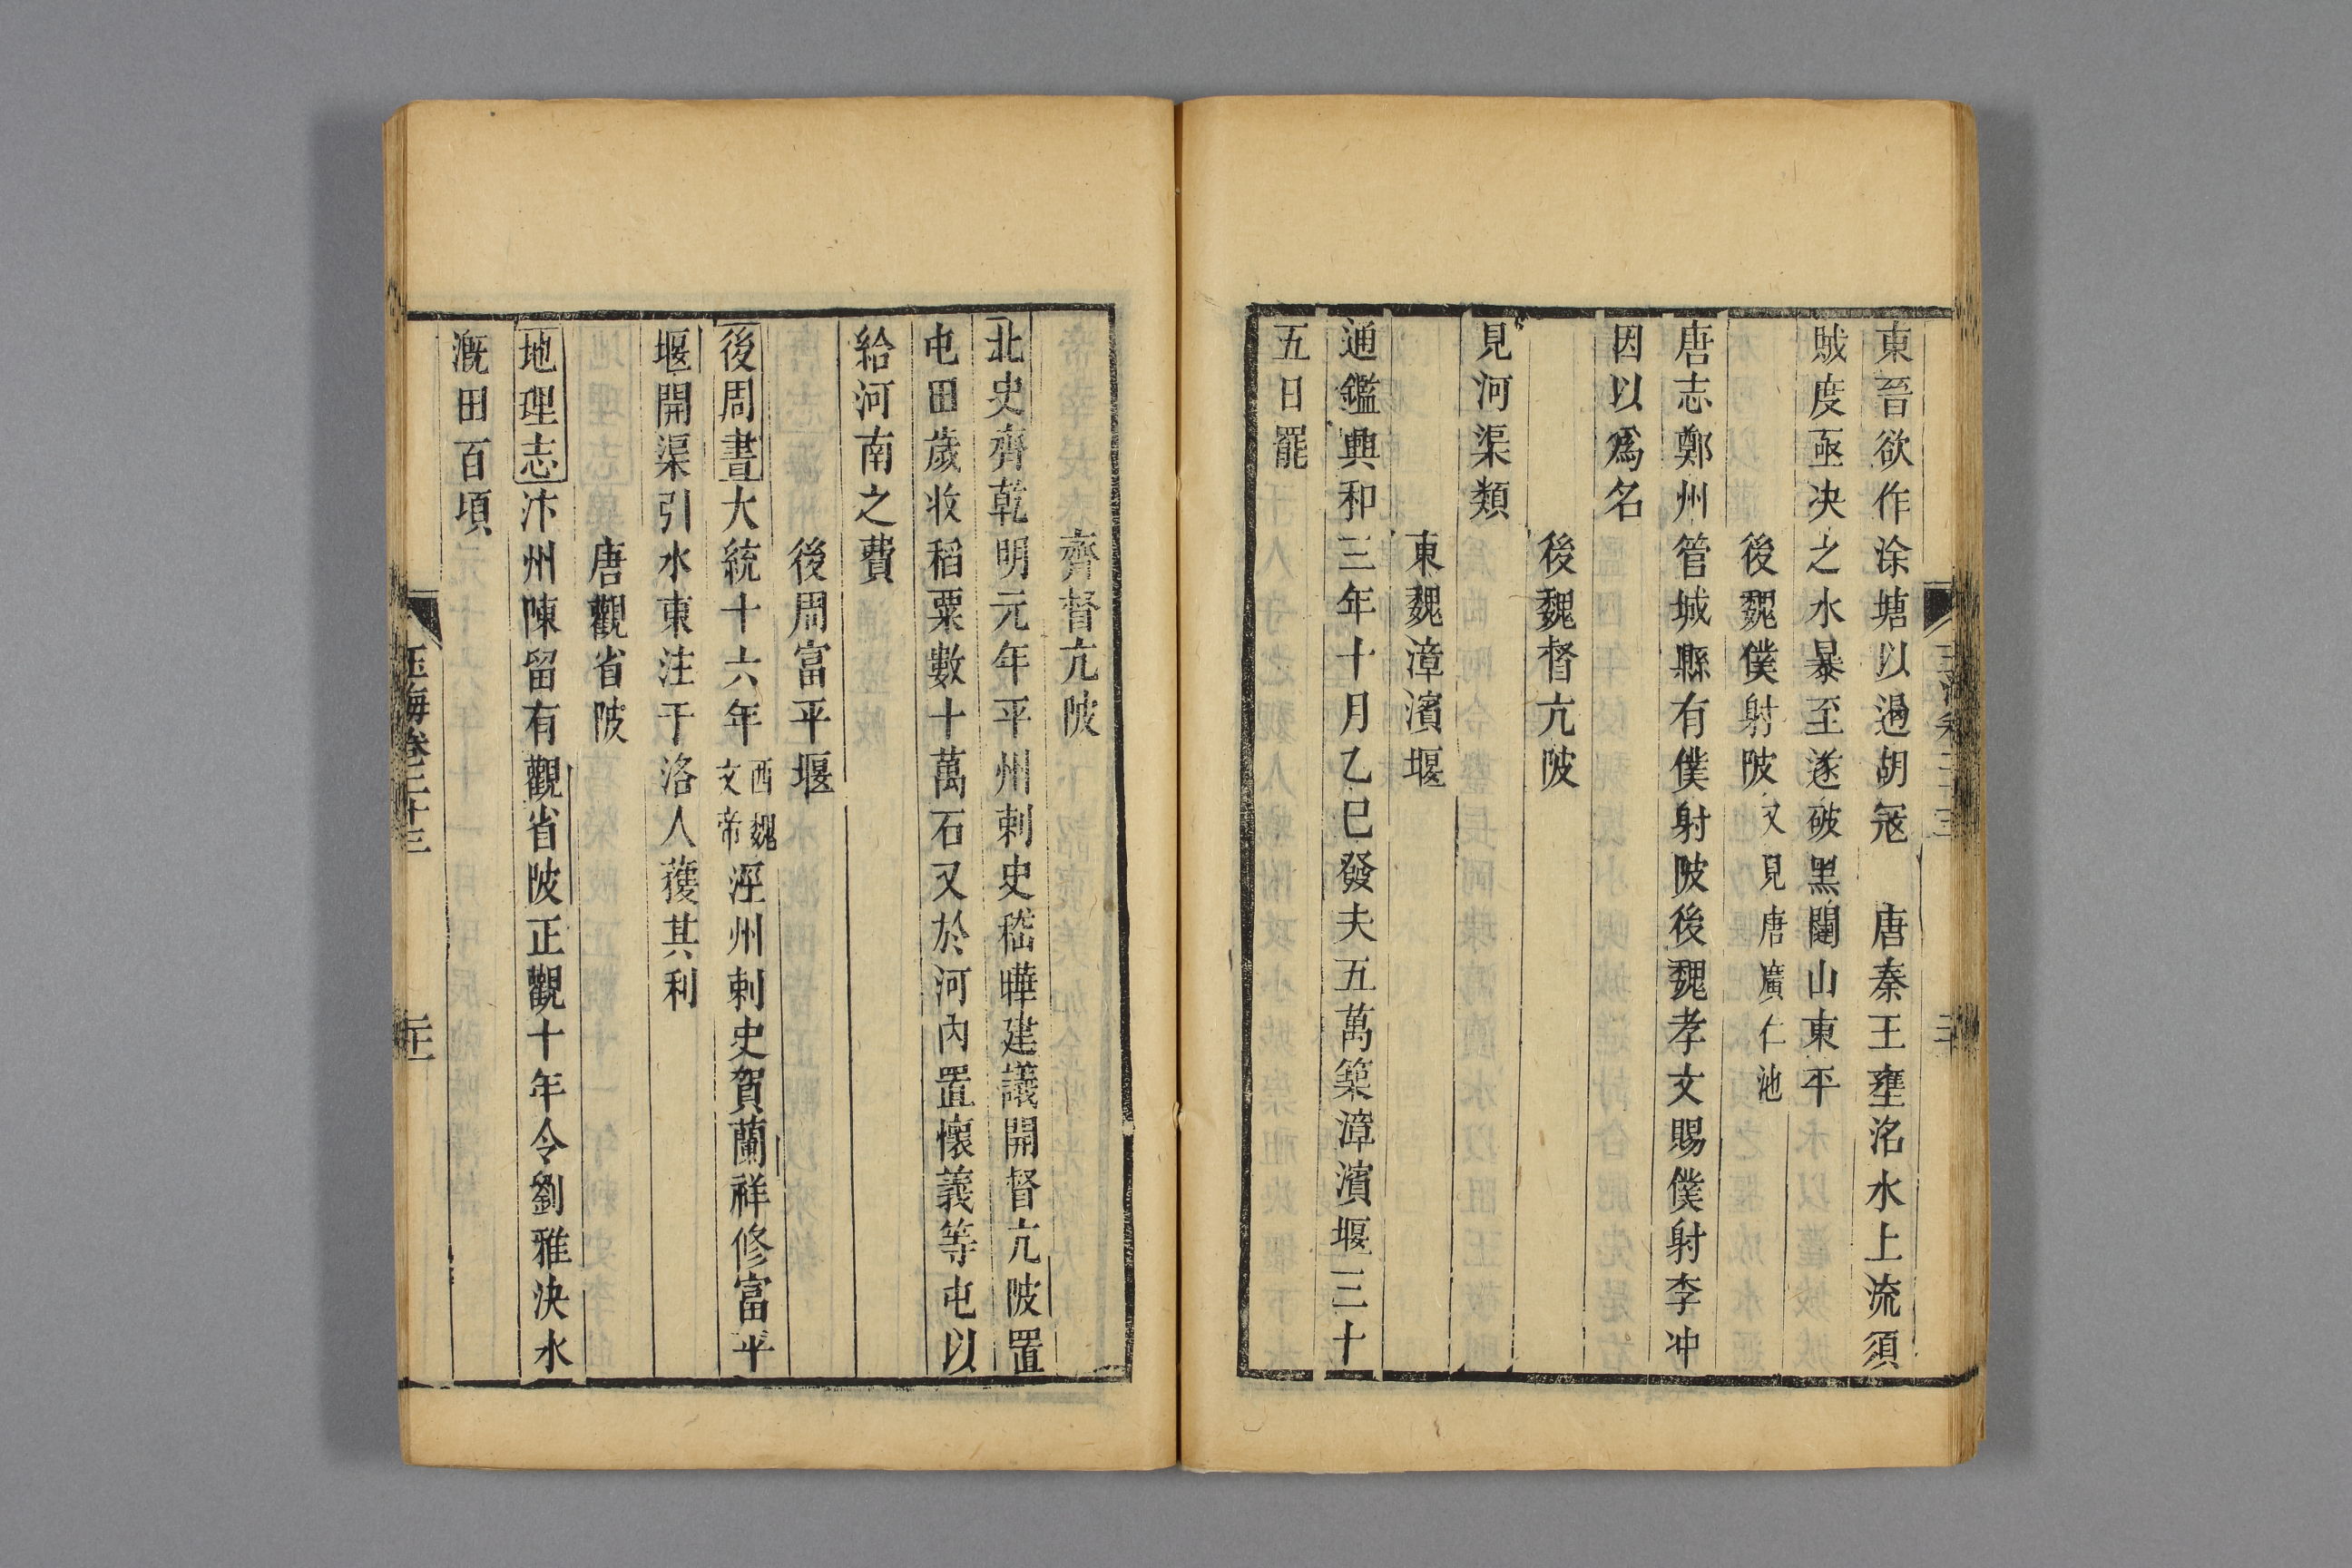 東晉欲作涂塘以遏胡寇　唐秦王壅洺水上流須
賊度亟決之水暴至遂破黑闥山東平
後魏僕射陂又見唐廣仁池
唐志鄭州管城縣有僕射陂後魏孝文賜僕射李冲
因以爲名
後魏督亢陂
見河渠類
東魏漳濱堰
通鑑興和三年十月乙巳發夫五萬築漳濱堰三十
五日罷
齊督亢陂
北史齊乾明元年平州刺史嵇曄建議開督亢陂置
屯田歲收稻粟數十萬石又於河內置懷義等屯以
給河南之費
後周富平堰
後周書大統十六年西魏文帝涇州刺史賀蘭祥修富平
堰開渠引水東注于洛人獲其利
唐觀省陂
地理志汴州陳留有觀省陂正觀十年令劉雅決水
溉田百頃
玉海卷二十三